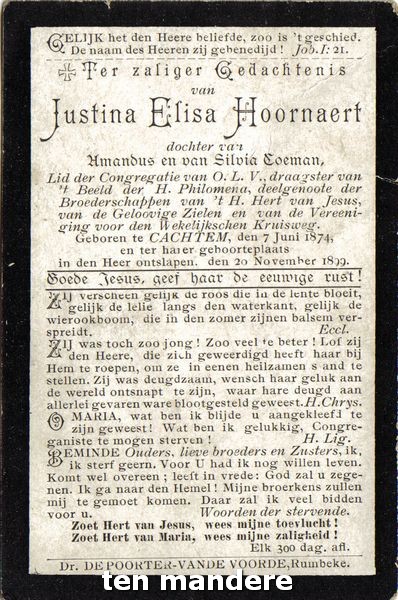 GELIJK het den Heere beliefde, zoo is 't geschied.
De naam des Heeren zij gebenedijd ! Job. I : 21.
Ter zaliger Gedachtenis
van
Justina Elisa Hoornaert
dochter van
Amandus en van Silvia Coeman,
Lid der Congregatie van O. L. V., draagster van
't Beeld der H. Philomena, deelgenoote der
Broederschappen van 't H. Hert van Jesus,
van de Geloovige Zielen en van de Vereeni-
ging voor den Wekelijkschen Kruisweg.
Geboren te CACHTEM, den 7 Juni 1874,
en ter harer geboorteplaats
in den Heer ontslapen, den 20 November 1899.
Goede Jesus, geef haar de eeuwige rust !
ZIJ verscheen gelijk de roos die in de lente bloeit,
gelijk de lelie langs den waterkant, gelijk de
wierookboom, die in den zomer zijnen balsem ver-
spreidt. Eccl.
ZIJ was toch zoo jong ! Zoo veel te beter ! Lof zij
den Heere, die zich geweerdigd heeft haar bij
Hem te roepen, om ze in eenen heilzamen s and te
stellen. Zij was deugdzaam, wensch haar geluk aan
de wereld ontsnapt te zijn, waar hare deugd aan
allerlei gevaren ware blootgesteld geweest. H. Chrys.
O MARIA, wat ben ik blijde u aangekleefd te
zijn geweest ! Wat ben ik gelukkig, Congre-
ganiste te mogen sterven ! H. Lig.
BEMINDE Ouders, lieve broeders en Zusters, ik,
ik sterf geern. Voor U had ik nog willen leven.
Komt wel overeen ; leeft in vrede: God zal u zege-
nen. Ik ga naar den Hemel ! Mijne broerkens zullen
mij te gemoet komen. Daar zal ik veel bidden
voor u. Woorden der stervende.
Zoet Hert van Jesus, wees mijne toevlucht !
Zoet Hert van Maria, wees mijne zaligheid !
Elk 300 dag. afl.
Dr. DE POORTER-VANDE VOORDE, Rumbeke.
ten mandere